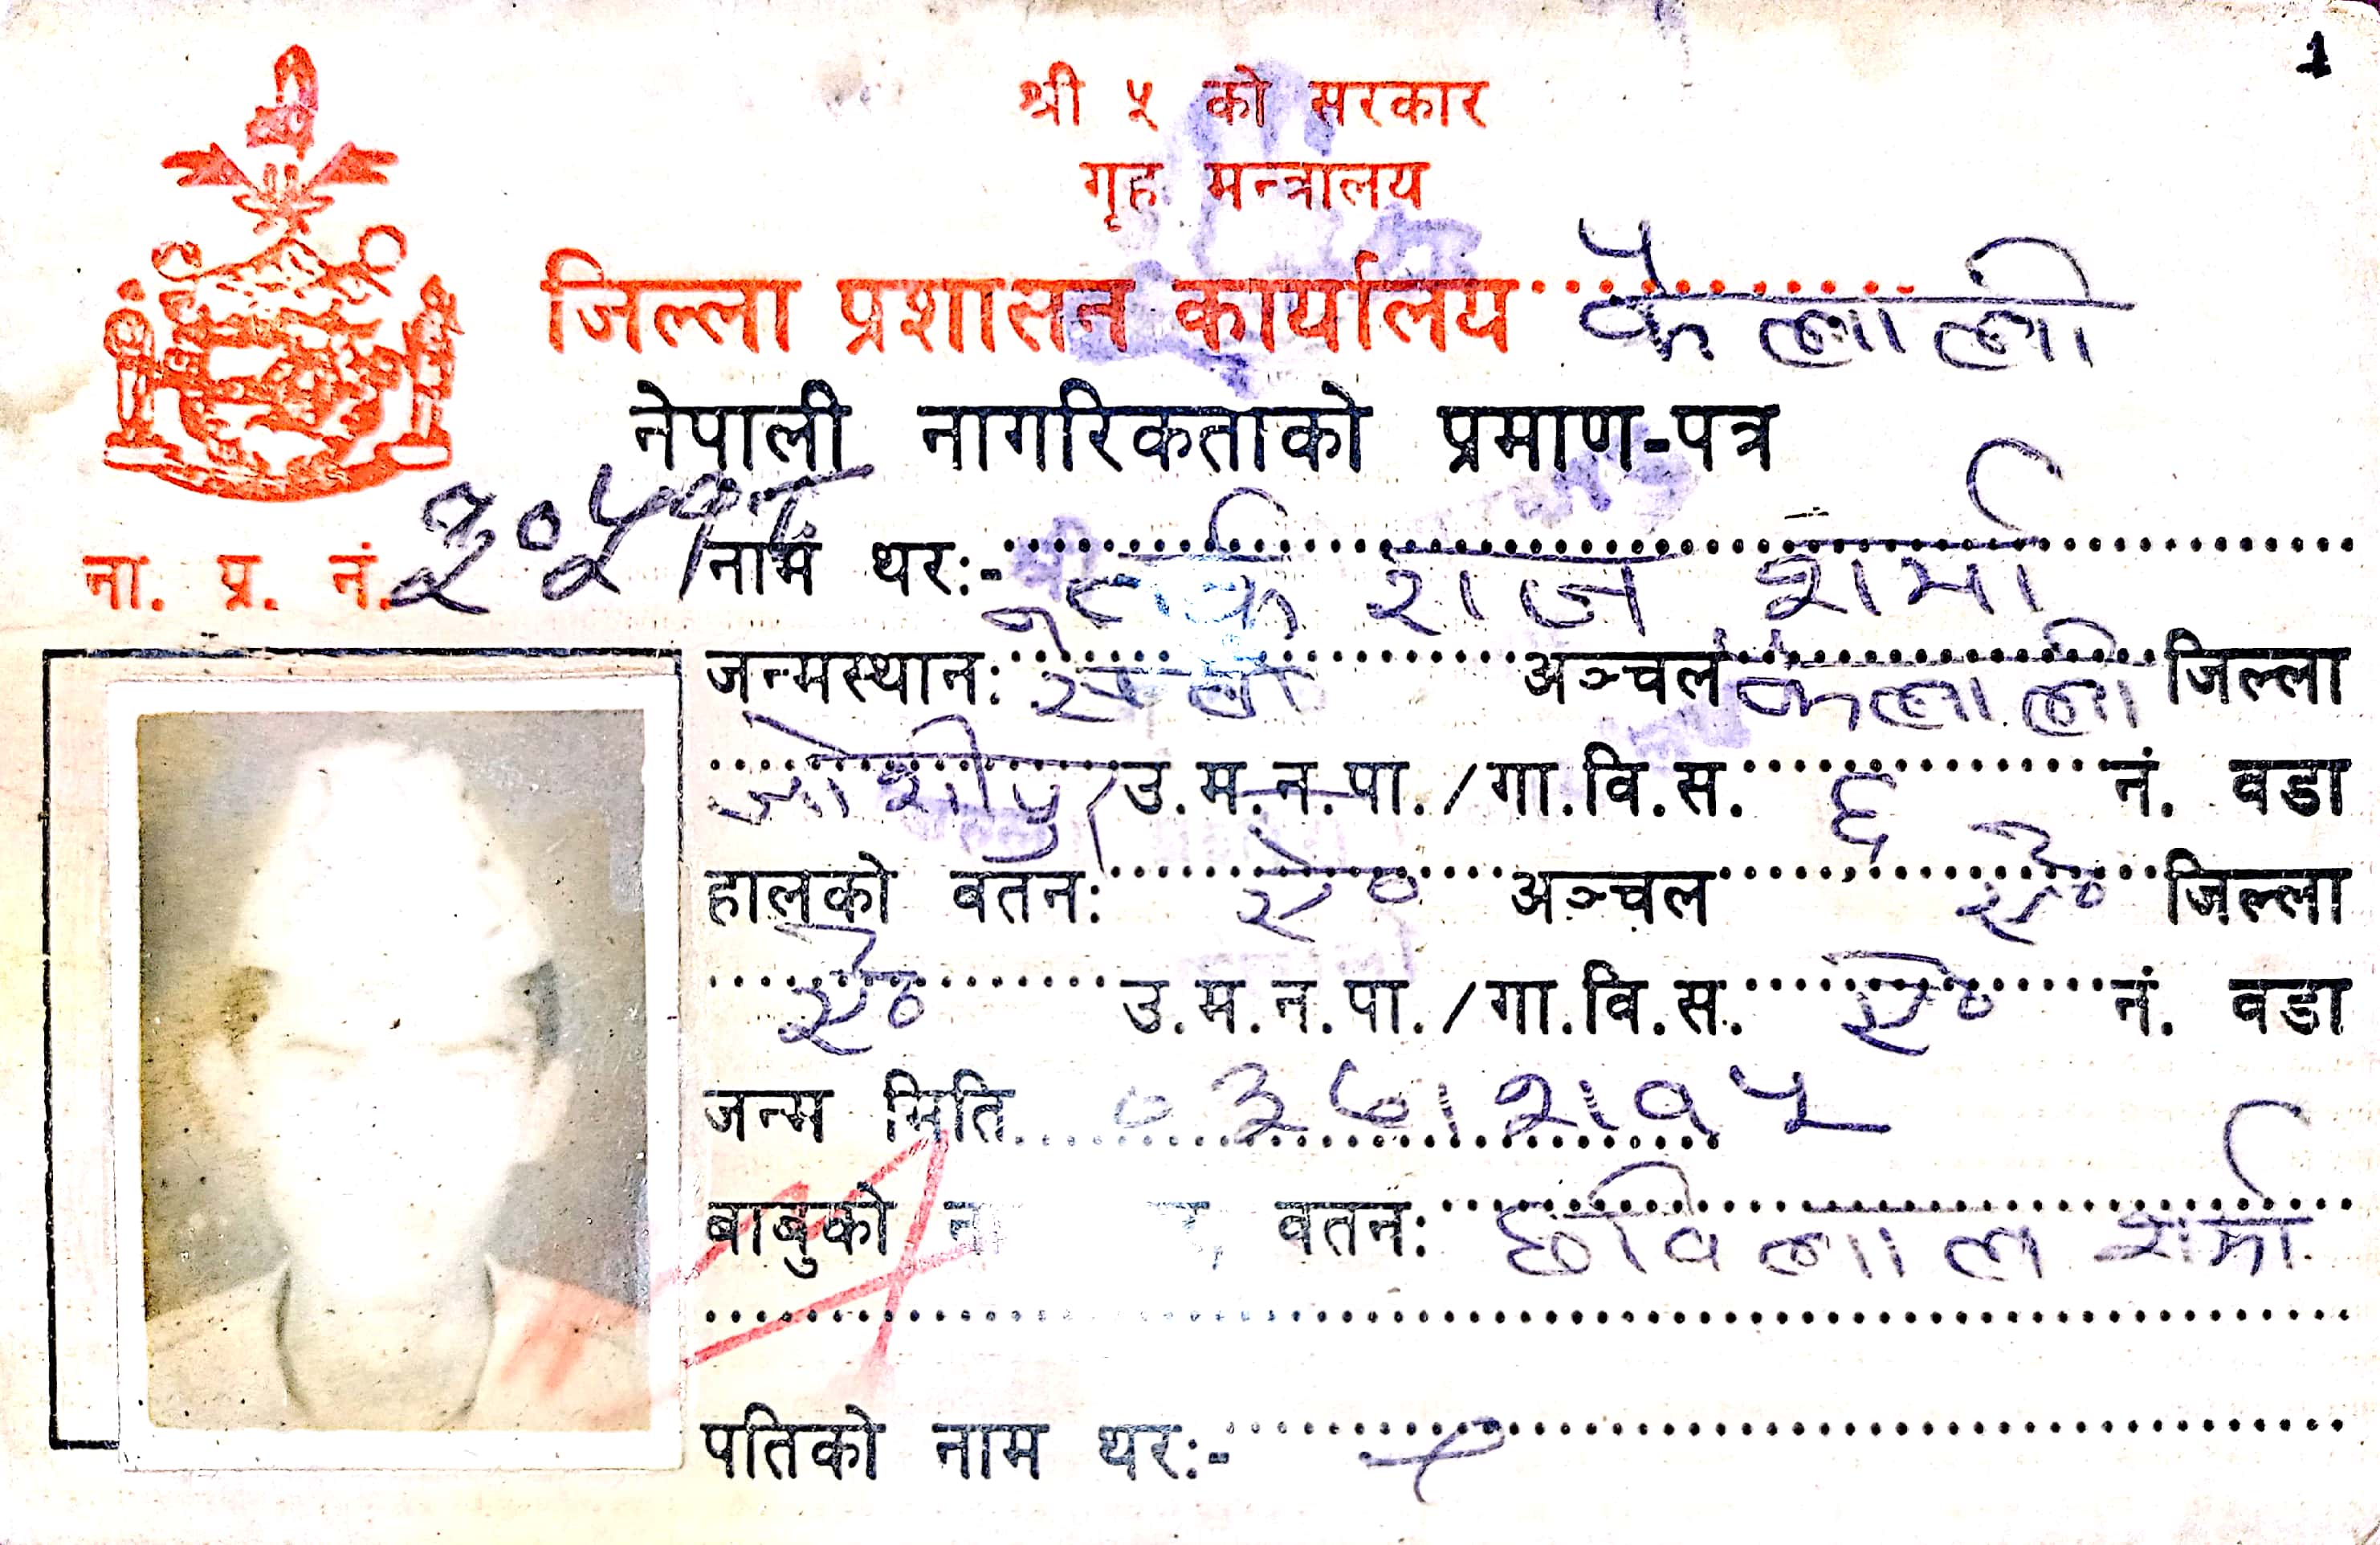 1
श्री ५ को सरकार
गृह मन्त्रालय
जिल्ला प्रशासन कार्यालय कैलाली
नेपाली नागरिकताको प्रमाण-पत्र
ना. प्र. नं.
नाम थर:- श्री टर्क राज शर्मा
जन्मस्थान: सेती अञ्चल कैलाली जिल्ला
जोशीपुर उ.म.न.पा./गा.वि.स. ६ नं. वडा
हालको वतन: ऐ० अञ्चल ऐ० जिल्ला
ऐ० उ.म.न.पा./गा.वि.स. ऐ० नं. वडा
जन्म मिति ०३७।२।१५
बाबुको ना वतन: छविलाल शर्मा
पतिको नाम थर:-